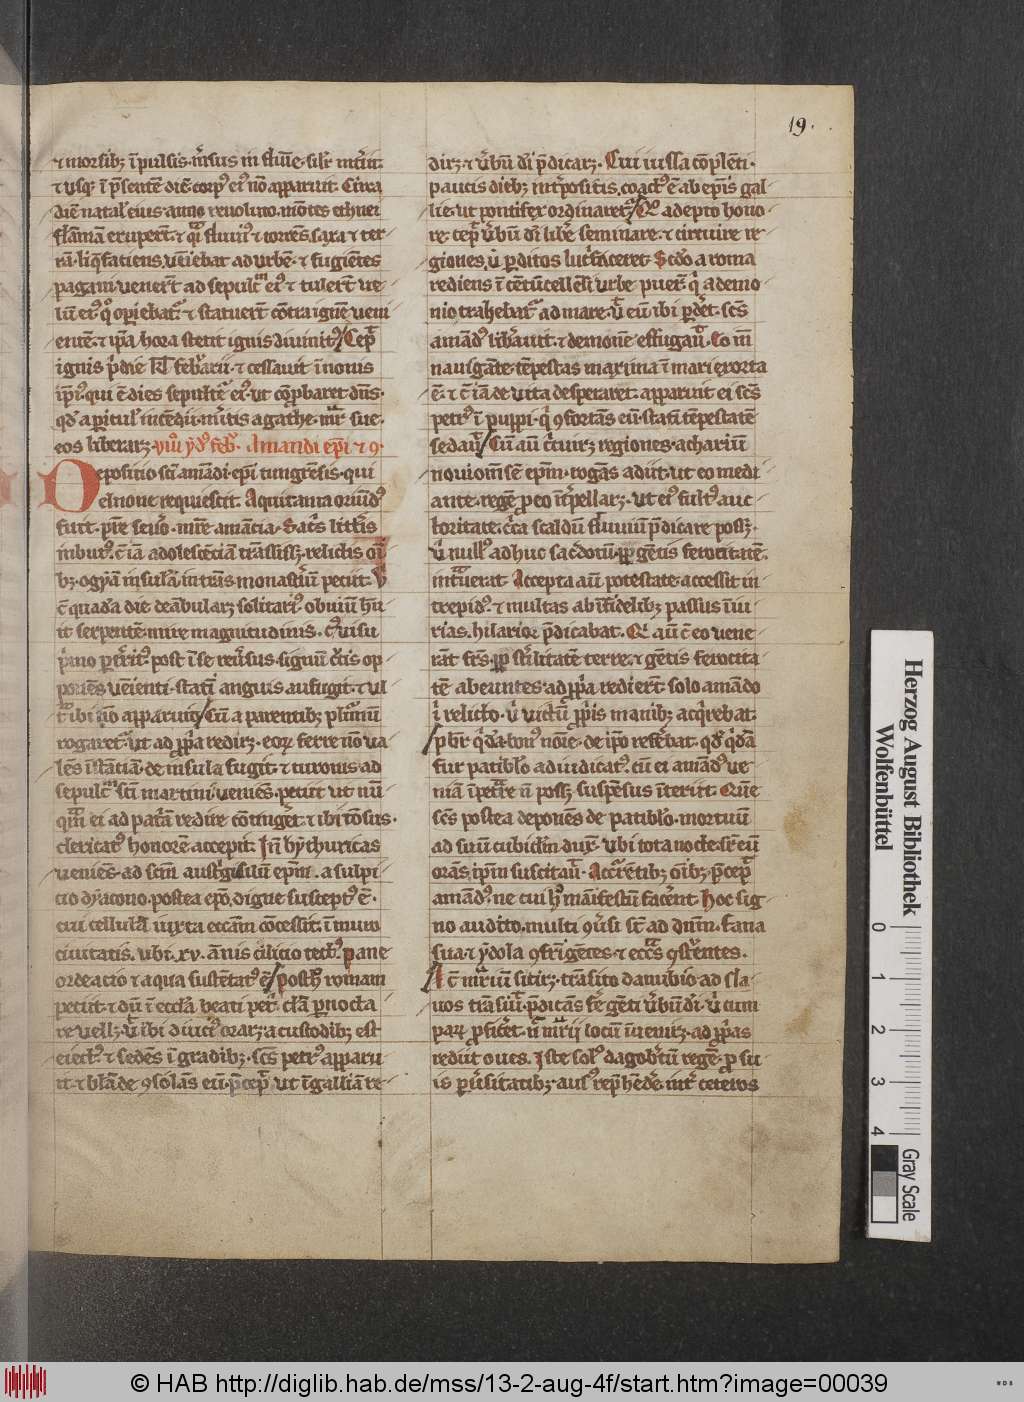 19.
⁊ morsibꝫ īpulsis mersus in flumē. silr̄ int̄iit.
⁊ usqꝫ ī p̄sentē diē corpꝰ eiꝰ nō apparuit. Circa
diē natal̄ eius anno reuoluto. mōtes ethnei
flāmā eruper̄t. ⁊ qͣi fluuiꝰ ⁊ torrēs saxa ⁊ ter
rā liq̄faciens ueniebat ad urbē. ⁊ fugiētes
pagani uener̄t ad sepulcͣm eiꝰ ⁊ tuler̄t ue
lū eiꝰ qͦ opiebat̄ ⁊ statuer̄t cōtra ignē ueni
entē. ⁊ ip̄a hora stetit ignis diuinitꝰ. Cep̄
ignis p̄die kl̄ februarii. ⁊ cessauit ī nonis
ip̄iꝰ. qui ē dies sepulture eiꝰ. ut cōprobaret dn̄s.
qd̓ a ꝑicul̓ incēdii. meritis agathe mr̄ sue.
eos liberarꝫ. viij yd̓ febr̄. Amandi ep̄i ⁊ 9.
Depositio sc̄i amādi ep̄i tungrēsis. qui
elnone requiescit. Aquitania oriūdꝰ
fuit. pr̄e sereno. mr̄e amācia. Sacris litteris
inbutꝰ. c̄ iā adolescēciā trāsissꝫ. relictis oīꝫ
bꝫ. ogyā insulā intrās monasteriū petiit. V
c̄ quadā die deābularꝫ solitariꝰ. obuiū hūu
it serpentē mire magnitudinis. cꝰ uisu
p̄mo ꝑt̓ritꝰ post ī se reuersus. signū c̄cis op
ponēs uenienti. statī anguis aufugit. ⁊ ul
tͣ ibi nō apparuit. Cū a parentibꝫ plurimū
rogaret̄. ut ad ꝓp̄a redirꝫ. eoꝝ ferre nō ua
lēs īstāciā. de insula fugit. ⁊ turonis ad
sepulcͣm sc̄i martini ueniēs. petiit ut nū
qͣm ei ad pat̄ā redire cōtingeret. ⁊ ibi tōsus.
clericatꝰ honorē accepit. Īn bythuricas
ueniēs. ad sc̄m austrigisilū ep̄m. a sulpi
cio dyacono. postea ep̄o. digne susceptꝰ ē.
cui cellulā iuxta ecc̄am cōcessit. ī muro
ciuitatis. ubi. xv. ānis cilicio tectꝰ. pane
ordeacio ⁊ aqua sustētatꝰ ē. posth̓ romam
petiit. ⁊ dū ī ecc̄la beati petri clā ꝑnocta
re uellꝫ. ut̄ ibi diucꝰ orarꝫ. a custodibꝫ est
eiectꝰ. ⁊ sedēs ī gradibꝫ. sc̄s petrꝰ apparu
it. ⁊ blāde ꝯsolās eū. p̄cep̄ ut ī galliā re
dirꝫ. ⁊ ūbū dī p̄dicarꝫ. Cui iussa cōplēti.
paucis diebꝫ interpositis. coactꝰ ē ab ep̄is gal
lie. ut pontifex ordinaret̄. Qͦ adepto hono
re. cep̄ ūbū dī libere seminare. ⁊ circuire re
giones. ut ꝑditos lucͥfaceret. Secd̓o a roma
rediens ī cētūcellēsi urbe puer̄. qͥ a demo
nio trahebat̄ ad mare. ut eū ibi ꝑderet. sc̄s
amādꝰ liberauit. ⁊ demonē effugauit. Eo in̄
nauigāte tēpestas maxima ī mari exorta
ē. ⁊ c̄ iā de uita desperaret̄. apparuit ei sc̄s
petrꝰ ī puppi. qͥ ꝯfortās eū. statī tēpestatē
sedauit. Cū aū c̄cuirꝫ regiones. achariū
nouiom̄sē ep̄m. rogās adiit. ut eo medi
ante. regē ꝓ eo īterpellarꝫ. ut eiꝰ fultꝰ auc
toritate. c̄ca scaldū fluuiū p̄dicare possꝫ.
ut nullꝰ adhuc sacerdotū. ꝓpt̄ gētis ferocitatē.
intͣuerat. Accepta aū potestate accessit in
trepidꝰ. ⁊ multas ab īfidelibꝫ passus iniu
rias. hilarior p̄dicabat. Qͥ aū c̄ eo uene
rāt frs̄. ꝓpt̄ sterilitatē terre. ⁊ gētis ferocita
tē abeuntes. ad ꝓp̄a redier̄t. solo amādo
ī relicto. ut uictū ꝓp̄is manibꝫ acq̄rebat.
p̄br q̄dā bonꝰ noīe. de ip̄o referebat. qd̓ qͥdā
fur patibulo adiudicatꝰ. cū ei amādꝰ ue
niā īpetͣre n̄ possꝫ. suspēsus īteriit. Quē
sc̄s postea deponēs de patibulo. mortuū
ad suū cubicl̓m dux̄. ubi tota nocte sr̄ eū
orās. ip̄m suscitauit. Accurrētibꝫ oībꝫ p̄cep̄
amādꝰ. ne cui h̓ māifestū facerent. Hoc sig
no audito. multi ꝯuersi st̄ ad dn̄m. fana
sua ⁊ ydola ꝯfringētes. ⁊ ecc̄as ꝯstruentes.
Ac̄ mr̄iū sitirꝫ. trāsito danubio ad sla
uos trāsiuit. p̄dicās fere gēti ūbū dī. ut cum
paꝝ ꝓficeret. n̄ mr̄ij locū īuenirꝫ. ad ꝓp̄as
rediit oues. Iste solꝰ dagobertū regē ꝓ su
is ꝑuersitatibꝫ ausꝰ rep̄hēdere. inter̄ ceteros
Herzog August Bibliothek
Wolfenbüttel
0 1 2 3 4
Gray Scale
© HAB http://diglib.hab.de/mss/13-2-aug-4f/start.htm?image=00039